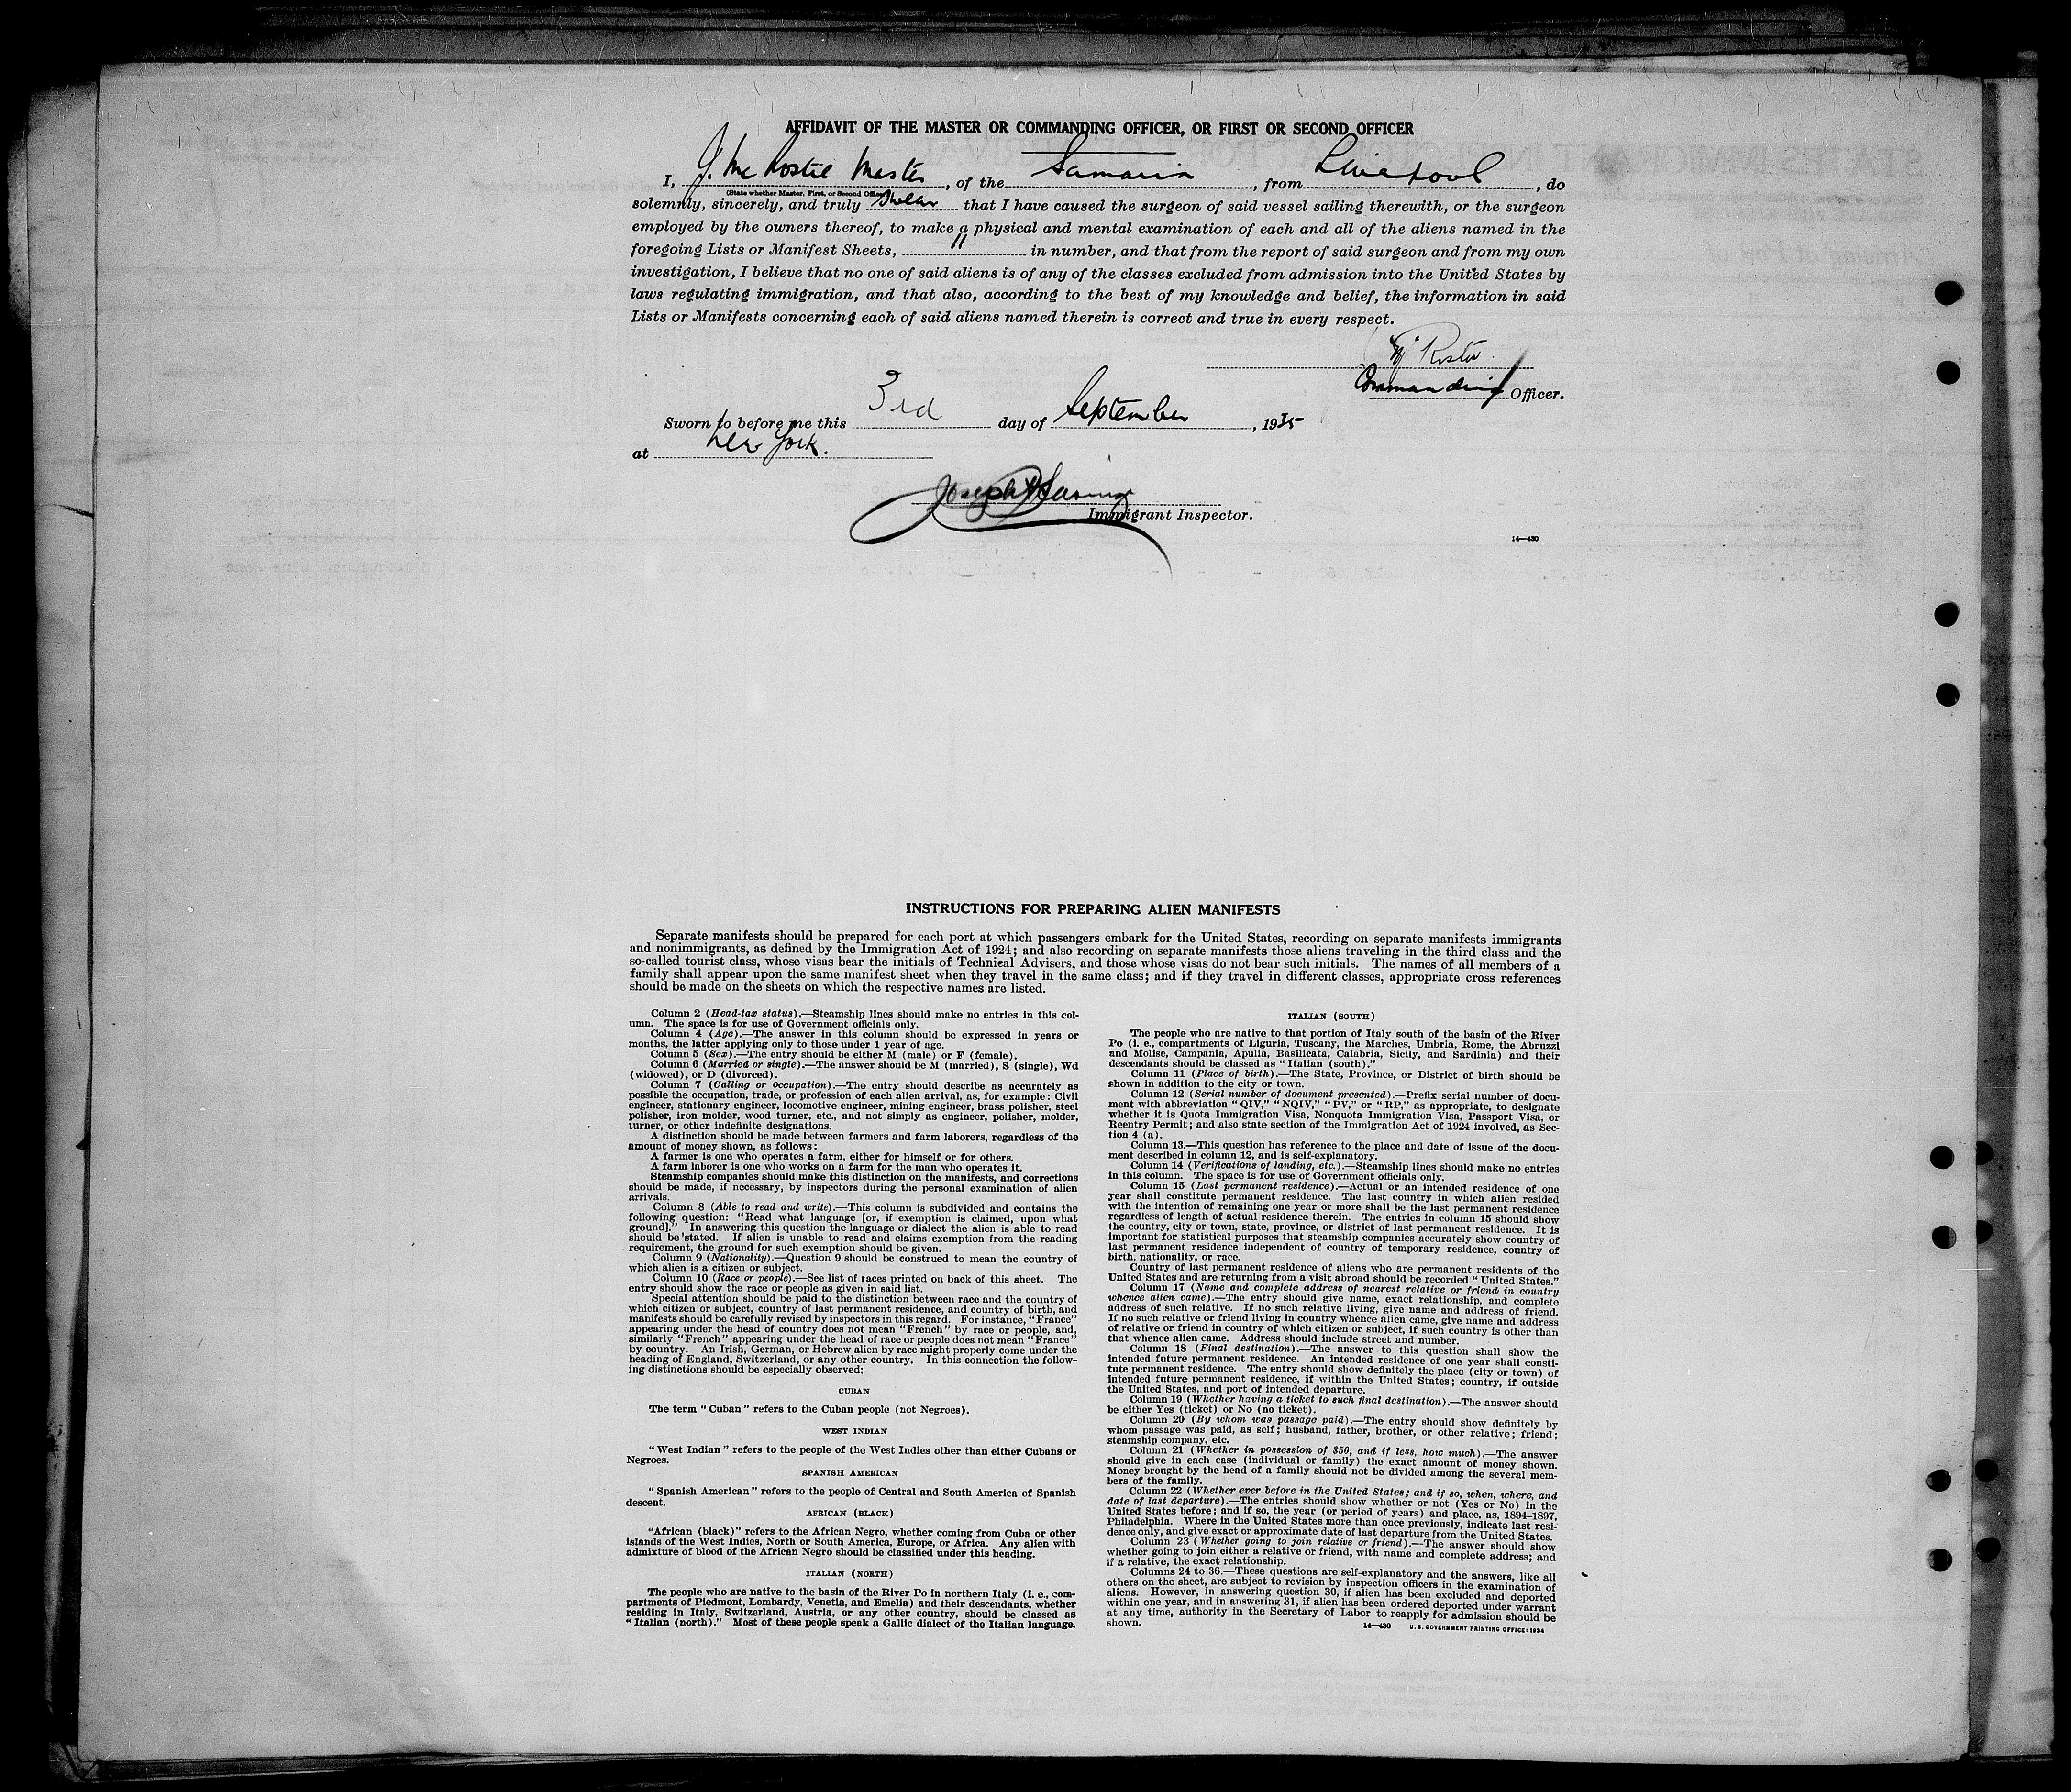 AFFIDAVIT OF THE MASTER OR COMMANDING OFFICER, OR FIRST OR SECOND OFFICER
I, J. Mc Rostie Master, of the Samaria, from Liverpool, do
(State whether Master, First, or Second Officer)
solemnly, sincerely, and truly swear that I have caused the surgeon of said vessel sailing therewith, or the surgeon
employed by the owners thereof, to make a physical and mental examination of each and all of the aliens named in the
foregoing Lists or Manifest Sheets, 11 in number, and that from the report of said surgeon and from my own
investigation, I believe that no one of said aliens is of any of the classes excluded from admission into the United States by
laws regulating immigration, and that also, according to the best of my knowledge and belief, the information in said
Lists or Manifests concerning each of said aliens named therein is correct and true in every respect.
Commanding Officer.
Sworn to before me this 3rd day of September, 1935
at New York.
Joseph
Immigrant Inspector.
14—430
INSTRUCTIONS FOR PREPARING ALIEN MANIFESTS
Separate manifests should be prepared for each port at which passengers embark for the United States, recording on separate manifests immigrants
and nonimmigrants, as defined by the Immigration Act of 1924; and also recording on separate manifests those aliens traveling in the third class and the
so-called tourist class, whose visas bear the initials of Technical Advisers, and those whose visas do not bear such initials. The names of all members of a
family shall appear upon the same manifest sheet when they travel in the same class; and if they travel in different classes, appropriate cross references
should be made on the sheets on which the respective names are listed.
Column 2 (Head-tax status).—Steamship lines should make no entries in this col-
umn. The space is for use of Government officials only.
Column 4 (Age).—The answer in this column should be expressed in years or
months, the latter applying only to those under 1 year of age.
Column 5 (Sex).—The entry should be either M (male) or F (female).
Column 6 (Married or single).—The answer should be M (married), S (single), Wd
(widowed), or D (divorced).
Column 7 (Calling or occupation).—The entry should describe as accurately as
possible the occupation, trade, or profession of each alien arrival, as, for example: Civil
engineer, stationary engineer, locomotive engineer, mining engineer, brass polisher, steel
polisher, iron molder, wood turner, etc., and not simply as engineer, polisher, molder,
turner, or other indefinite designations.
A distinction should be made between farmers and farm laborers, regardless of the
amount of money shown, as follows:
A farmer is one who operates a farm, either for himself or for others.
A farm laborer is one who works on a farm for the man who operates it.
Steamship companies should make this distinction on the manifests, and corrections
should be made, if necessary, by inspectors during the personal examination of alien
arrivals.
Column 8 (Able to read and write).—This column is subdivided and contains the
following question: "Read what language [or, if exemption is claimed, upon what
ground]." In answering this question the language or dialect the alien is able to read
should be stated. If alien is unable to read and claims exemption from the reading
requirement, the ground for such exemption should be given.
Column 9 (Nationality).—Question 9 should be construed to mean the country of
which alien is a citizen or subject.
Column 10 (Race or people).—See list of races printed on back of this sheet. The
entry should show the race or people as given in said list.
Special attention should be paid to the distinction between race and the country of
which citizen or subject, country of last permanent residence, and country of birth, and
manifests should be carefully revised by inspectors in this regard. For instance, "France"
appearing under the head of country does not mean "French" by race or people, and,
similarly "French" appearing under the head of race or people does not mean "France"
by country. An Irish, German, or Hebrew alien by race might properly come under the
heading of England, Switzerland, or any other country. In this connection the follow-
ing distinctions should be especially observed:
CUBAN
The term "Cuban" refers to the Cuban people (not Negroes).
WEST INDIAN
"West Indian" refers to the people of the West Indies other than either Cubans or
Negroes.
SPANISH AMERICAN
"Spanish American" refers to the people of Central and South America of Spanish
descent.
AFRICAN (BLACK)
"African (black)" refers to the African Negro, whether coming from Cuba or other
islands of the West Indies, North or South America, Europe, or Africa. Any alien with
admixture of blood of the African Negro should be classified under this heading.
ITALIAN (NORTH)
The people who are native to the basin of the River Po in northern Italy (i. e., com-
partments of Piedmont, Lombardy, Venetia, and Emelia) and their descendants, whether
residing in Italy, Switzerland, Austria, or any other country, should be classed as
"Italian (north)." Most of these people speak a Gallic dialect of the Italian language.
ITALIAN (SOUTH)
The people who are native to that portion of Italy south of the basin of the River
Po (i. e., compartments of Liguria, Tuscany, the Marches, Umbria, Rome, the Abruzzi
and Molise, Campania, Apulia, Basilicata, Calabria, Sicily, and Sardinia) and their
descendants should be classed as "Italian (south)."
Column 11 (Place of birth).—The State, Province, or District of birth should be
shown in addition to the city or town.
Column 12 (Serial number of document presented).—Prefix serial number of docu-
ment with abbreviation "QIV," "NQIV," "PV," or "RP," as appropriate, to designate
whether it is Quota Immigration Visa, Nonquota Immigration Visa, Passport Visa, or
Reentry Permit; and also state section of the Immigration Act of 1924 involved, as Sec-
tion 4 (a).
Column 13.—This question has reference to the place and date of issue of the docu-
ment described in column 12, and is self-explanatory.
Column 14 (Verifications of landing, etc.).—Steamship lines should make no entries
in this column. The space is for use of Government officials only.
Column 15 (Last permanent residence).—Actual or an intended residence of one
year shall constitute permanent residence. The last country in which alien resided
with the intention of remaining one year or more shall be the last permanent residence
regardless of length of actual residence therein. The entries in column 15 should show
the country, city or town, state, province, or district of last permanent residence. It is
important for statistical purposes that steamship companies accurately show country of
last permanent residence independent of country of temporary residence, country of
birth, nationality, or race.
Country of last permanent residence of aliens who are permanent residents of the
United States and are returning from a visit abroad should be recorded "United States."
Column 17 (Name and complete address of nearest relative or friend in country
whence alien came).—The entry should give name, exact relationship, and complete
address of such relative. If no such relative living, give name and address of friend.
If no such relative or friend living in country whence alien came, give name and address
of relative or friend in country of which citizen or subject, if such country is other than
that whence alien came. Address should include street and number.
Column 18 (Final destination).—The answer to this question shall show the
intended future permanent residence. An intended residence of one year shall consti-
tute permanent residence. The entry should show definitely the place (city or town) of
intended future permanent residence, if within the United States; country, if outside
the United States, and port of intended departure.
Column 19 (Whether having a ticket to such final destination).—The answer should
be either Yes (ticket) or No (no ticket).
Column 20 (By whom was passage paid).—The entry should show definitely by
whom passage was paid, as self; husband, father, brother, or other relative; friend;
steamship company, etc.
Column 21 (Whether in possession of $50, and if less, how much).—The answer
should give in each case (individual or family) the exact amount of money shown.
Money brought by the head of a family should not be divided among the several mem-
bers of the family.
Column 22 (Whether ever before in the United States; and if so, when, where, and
date of last departure).—The entries should show whether or not (Yes or No) in the
United States before; and if so, the year (or period of years) and place, as, 1894–1897,
Philadelphia. Where in the United States more than once previously, indicate last resi-
dence only, and give exact or approximate date of last departure from the United States.
Column 23 (Whether going to join relative or friend).—The answer should show
whether going to join either a relative or friend, with name and complete address; and
if a relative, the exact relationship.
Columns 24 to 36.—These questions are self-explanatory and the answers, like all
others on the sheet, are subject to revision by inspection officers in the examination of
aliens. However, in answering question 30, if alien has been excluded and deported
within one year, and in answering 31, if alien has been ordered deported under warrant
at any time, authority in the Secretary of Labor to reapply for admission should be
shown.
14—430 U. S. GOVERNMENT PRINTING OFFICE: 1934